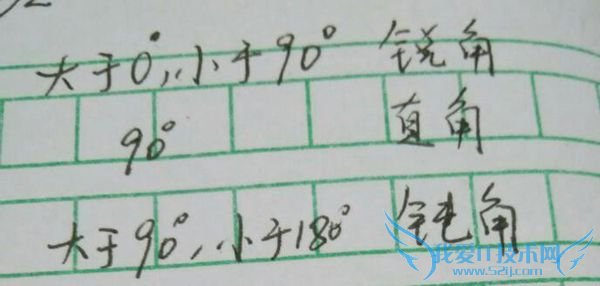 大于0°,小于90° 锐角
90° 直角
大于90°,小于180° 钝角
我爱IT技术网
www.52ij.com